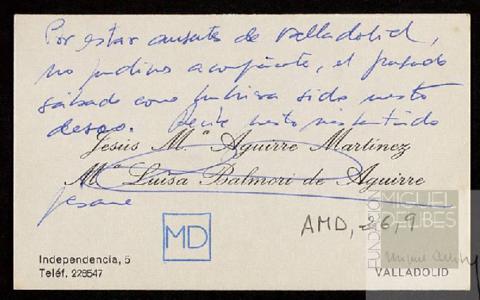 Por estar ausentes de Valladolid,
no pudimos acompañarte, el pasado
sábado como hubiera sido nuestro
deseo. Recibe nuestro más sentido
Jesús M.ª Aguirre Martínez
M.ª Luisa Balmori de Aguirre
pésame
MD
AMD, 26,9
FUNDACIÓN MIGUEL DELIBES
Independencia, 5
Teléf. 226547
VALLADOLID